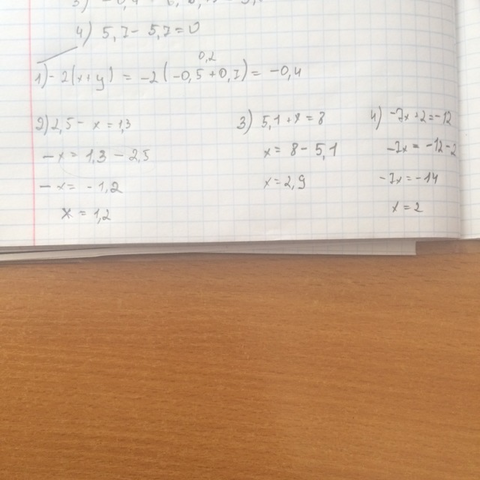 4) 5,7 - 5,7 = 0
0,2
1) -2(x+y) = -2(-0,5+0,7) = -0,4
2) 2,5 - x = 1,3
-x = 1,3 - 2,5
-x = -1,2
x = 1,2
3) 5,1 + x = 8
x = 8 - 5,1
x = 2,9
4) -7x+2=-12
-7x = -12-2
-7x = -14
x = 2